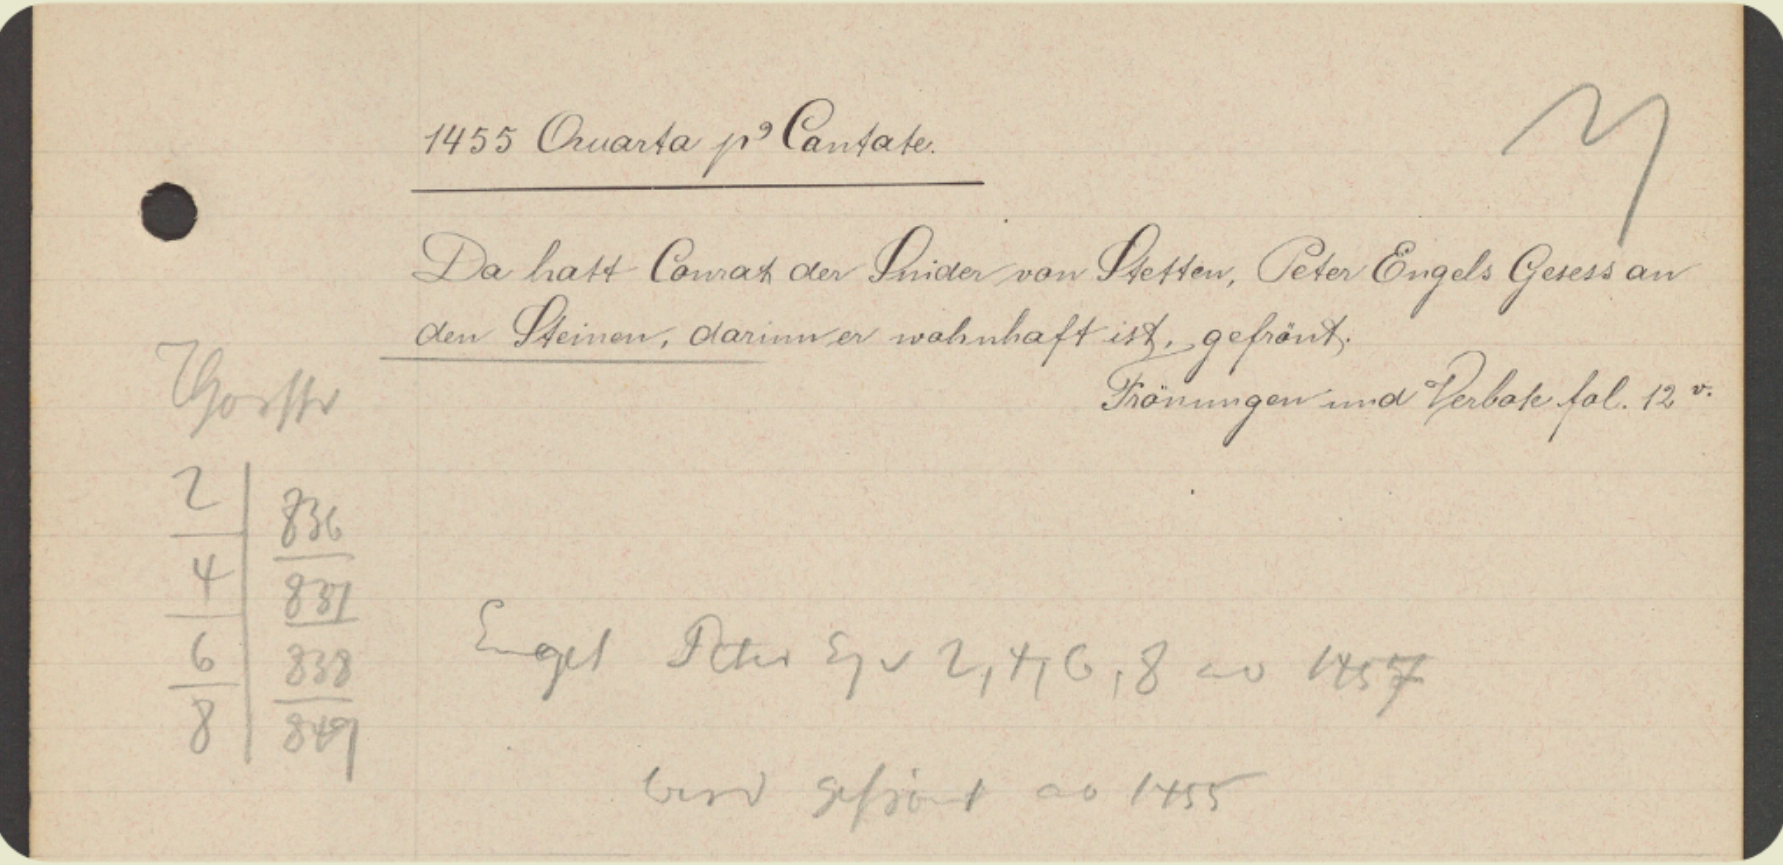 1455 Quarta p⁹ Cantate.
Da hatt Conrat der Snider von Stetten, Peter Engels Gesess an
den Steinen, darinn er wohnhaft ist, gefrönt.
Frönungen und Verbote fol. 12 v.
2 | 836
4 | 837
6 | 838
8 | 849
Engel Peter Eg v 2, 4, 6, 8 ao 1457
wird gefrönt ao 1455